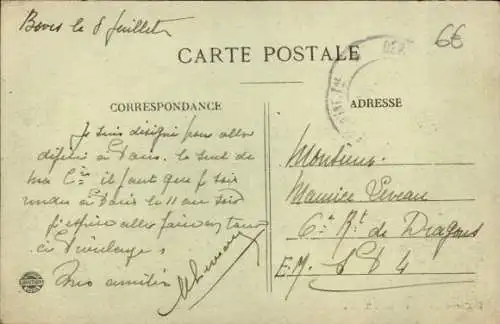 Boves le 8 Juillet
6€
CARTE POSTALE
CORRESPONDANCE
ADRESSE
Je suis désigné pour aller
défiler à Paris. le seul de
ma Cie il faut que je sois
rendu à Paris le 11 au soir
J'espère aller faire un tour
à
Bons amitiés
Monsieur
Maurice
6e Rt de Dragons
E.M. 4